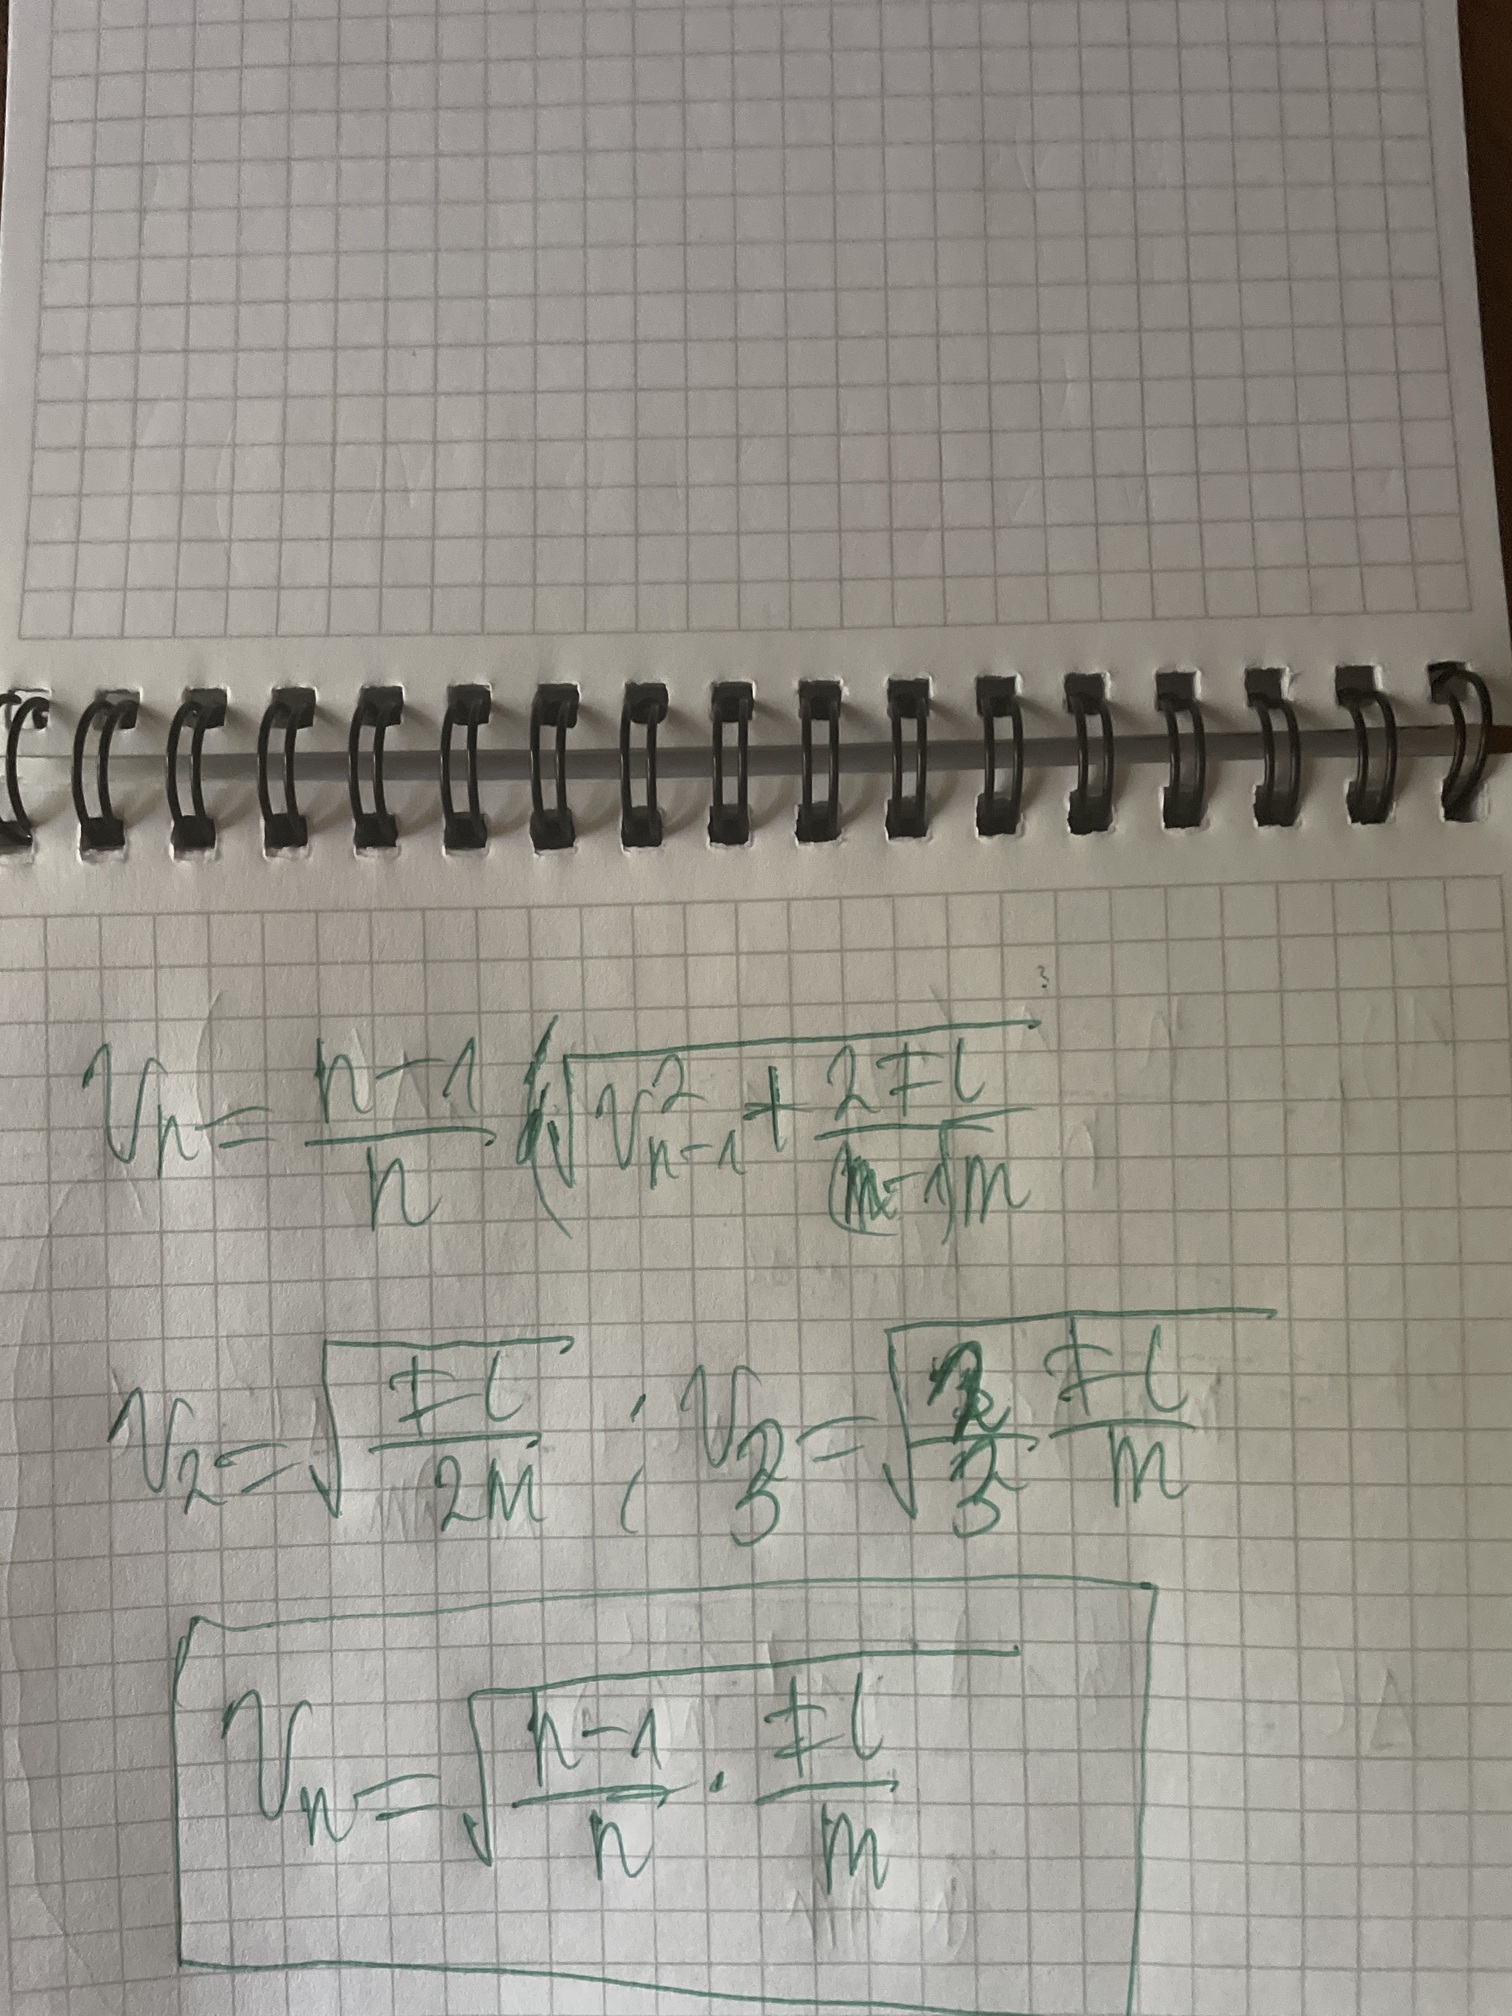 Vn = n-1/n · (√(V²n-1 + 2Fl/(n-1)m
V2 = √(Fl/2m) ; V3 = √(2/3 Fl/m)
Vn = √(n-1/n · Fl/m)